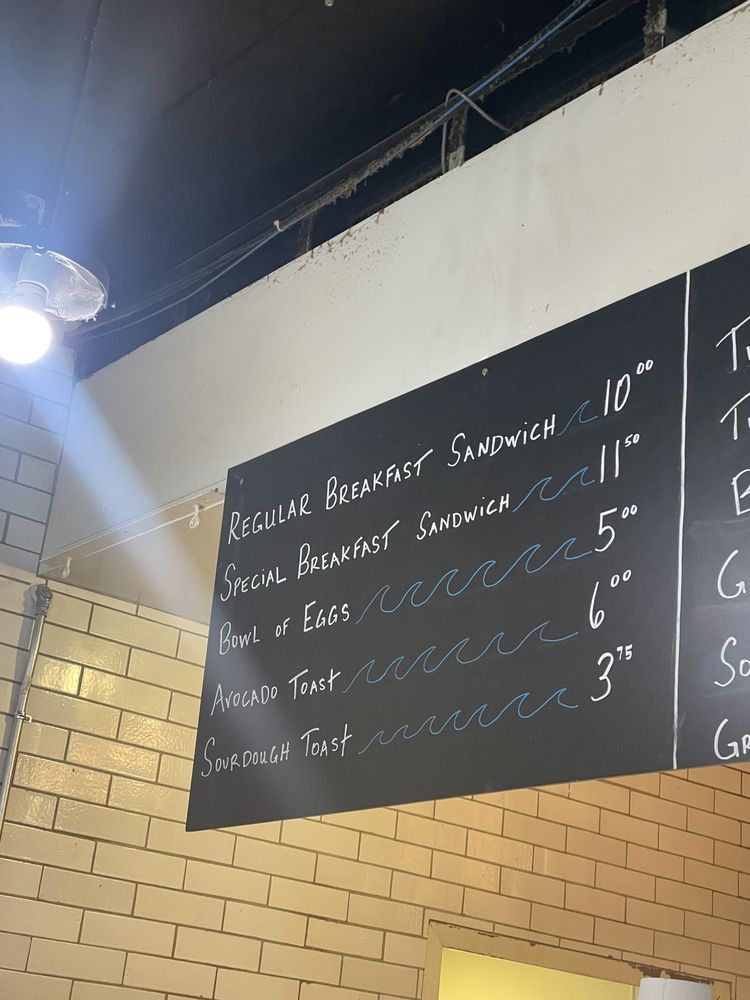 Regular Breakfast Sandwich 10⁰⁰
Special Breakfast Sandwich 11⁵⁰
Bowl of Eggs 5⁰⁰
Avocado Toast 6⁰⁰
Sourdough Toast 3⁷⁵